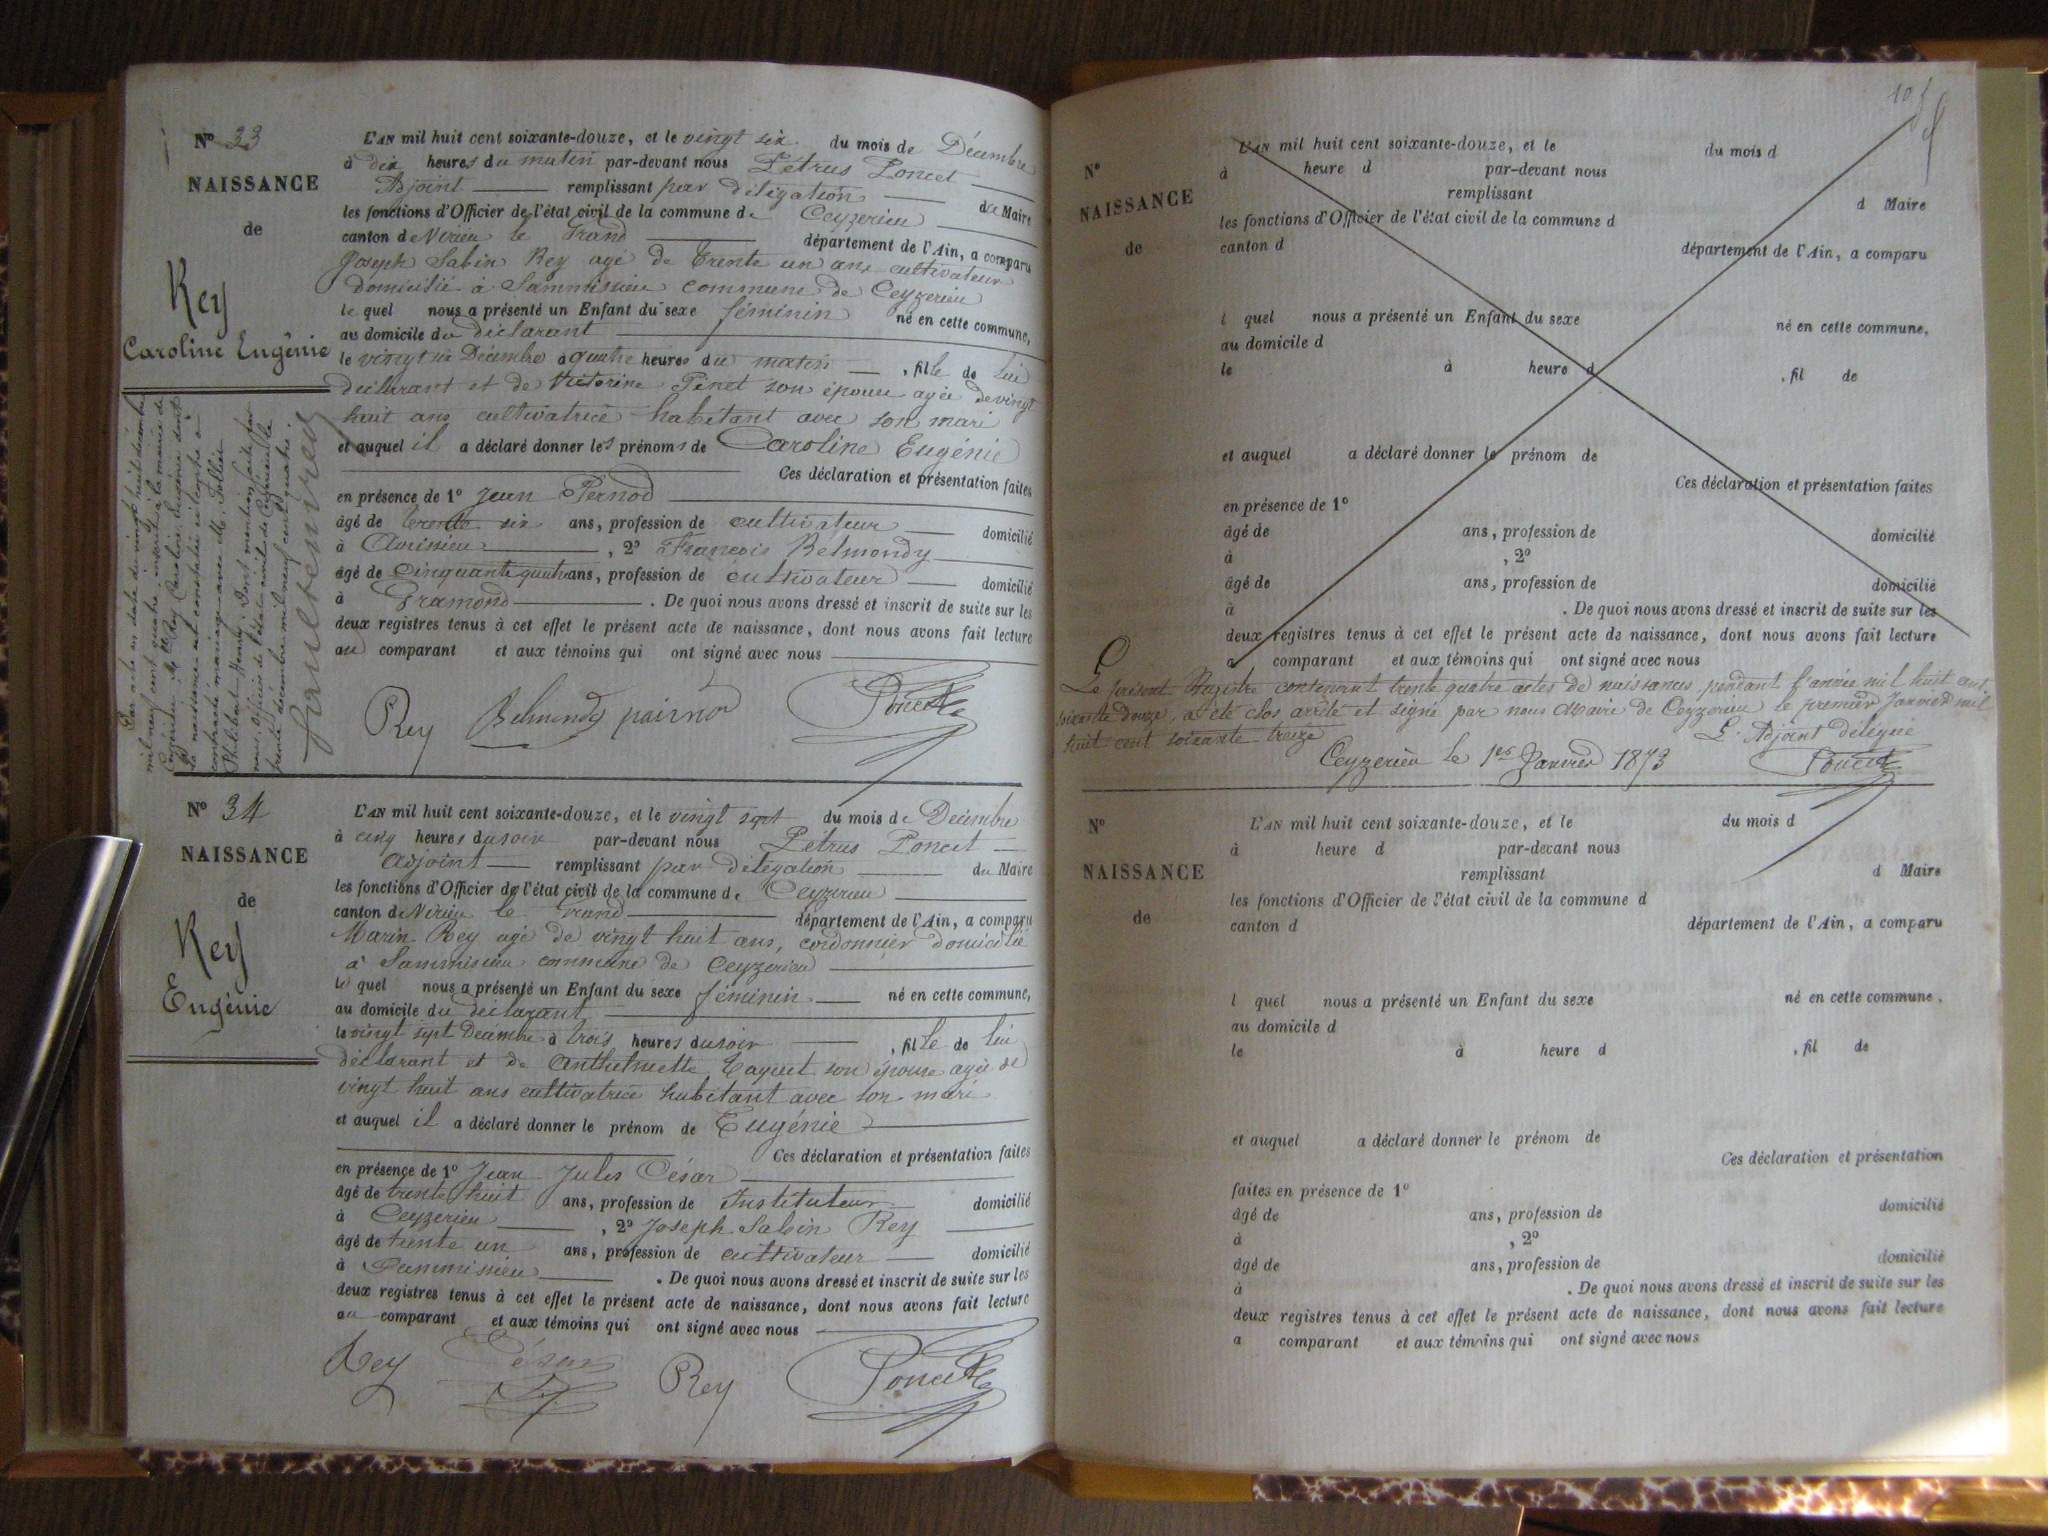 N° 33
NAISSANCE
de
Rey
Caroline Eugénie
L'AN mil huit cent soixante-douze, et le vingt six du mois de Décembre
à dix heures du matin par-devant nous Pétrus Poncet
Adjoint remplissant par délégation du Maire
les fonctions d'Officier de l'état civil de la commune de Ceyzerieu
canton de Virieu le Grand département de l'Ain, a comparu
Joseph Sabin Rey agé de trente un ans cultivateur
domicilié à Sammissieu commune de Ceyzerieu
le quel nous a présenté un Enfant du sexe féminin né en cette commune,
au domicile du déclarant
le vingt six Décembre à quatre heures du matin , fille de lui
déclarant et de Victorine Pinet son épouse agée de vingt
huit ans cultivatrice habitant avec son mari
et auquel il a déclaré donner les prénoms de Caroline Eugénie
Ces déclaration et présentation faites
en présence de 1° Jean Pernod
âgé de trente six ans, profession de cultivateur domicilié
à Avrissieu , 2° François Belmondy
âgé de Cinquante quatre ans, profession de cultivateur domicilié
à Gramond . De quoi nous avons dressé et inscrit de suite sur les
deux registres tenus à cet effet le présent acte de naissance, dont nous avons fait lecture
au comparant et aux témoins qui ont signé avec nous
Rey Belmondy pairnod Poncet
Par acte en date du vingt huit décembre
mil neuf cent quatre, inscrit à la mairie de
Ceyzérieu, Mlle Rey Caroline Eugénie dont
la naissance est constatée ci-contre a
contracté mariage avec M. Tellier
Philibert Henry. Dont mention faite par
nous, officier de l'état civil de
trente décembre mil neuf cent quatre.
N° 34
NAISSANCE
de
Rey
Eugénie
L'AN mil huit cent soixante-douze, et le vingt sept du mois de Décembre
à cinq heures du soir par-devant nous Pétrus Poncet
Adjoint remplissant par délégation du Maire
les fonctions d'Officier de l'état civil de la commune de Ceyzerieu
canton de Virieu le Grand département de l'Ain, a comparu
Marin Rey agé de vingt huit ans, cordonnier domicilié
à Sammissieu commune de Ceyzerieu
le quel nous a présenté un Enfant du sexe féminin né en cette commune,
au domicile du déclarant
le vingt sept Decembre à trois heures du soir , fille de lui
déclarant et de Anthelmette Taquet son épouse agée de
vingt huit ans cultivatrice habitant avec son mari
et auquel il a déclaré donner le prénom de Eugénie
Ces déclaration et présentation faites
en présence de 1° Jean Jules César
âgé de trente huit ans, profession de Instituteur domicilié
à Ceyzerieu , 2° Joseph Sabin Rey
âgé de trente un ans, profession de cultivateur domicilié
à Sammissieu . De quoi nous avons dressé et inscrit de suite sur les
deux registres tenus à cet effet le présent acte de naissance, dont nous avons fait lecture
au comparant et aux témoins qui ont signé avec nous
Rey César Rey Poncet
10
N°
NAISSANCE
de
L'AN mil huit cent soixante-douze, et le du mois d
à heure d par-devant nous
remplissant d Maire
les fonctions d'Officier de l'état civil de la commune d
canton d département de l'Ain, a comparu
l quel nous a présenté un Enfant du sexe né en cette commune,
au domicile d
le à heure d , fil de
et auquel a déclaré donner le prénom de
Ces déclaration et présentation faites
en présence de 1°
âgé de ans, profession de domicilié
à , 2°
âgé de ans, profession de domicilié
à . De quoi nous avons dressé et inscrit de suite sur les
deux registres tenus à cet effet le présent acte de naissance, dont nous avons fait lecture
a comparant et aux témoins qui ont signé avec nous
Le présent Registre contenant trente quatre actes de naissances, pendant l'année mil huit cent
soixante douze, a été clos arrêté et signé par nous Maire de Ceyzerieu le premier Janvier mil
huit cent soixante treize
L'Adjoint délégué
Ceyzerieu le 1er Janvier 1873 Poncet
N°
NAISSANCE
de
L'AN mil huit cent soixante-douze, et le du mois d
à heure d par-devant nous
remplissant d Maire
les fonctions d'Officier de l'état civil de la commune d
canton d département de l'Ain, a comparu
l quel nous a présenté un Enfant du sexe né en cette commune,
au domicile d
le à heure d , fil de
et auquel a déclaré donner le prénom de
Ces déclaration et présentation
faites en présence de 1°
âgé de ans, profession de domicilié
à , 2°
âgé de ans, profession de domicilié
à . De quoi nous avons dressé et inscrit de suite sur les
deux registres tenus à cet effet le présent acte de naissance, dont nous avons fait lecture
a comparant et aux témoins qui ont signé avec nous